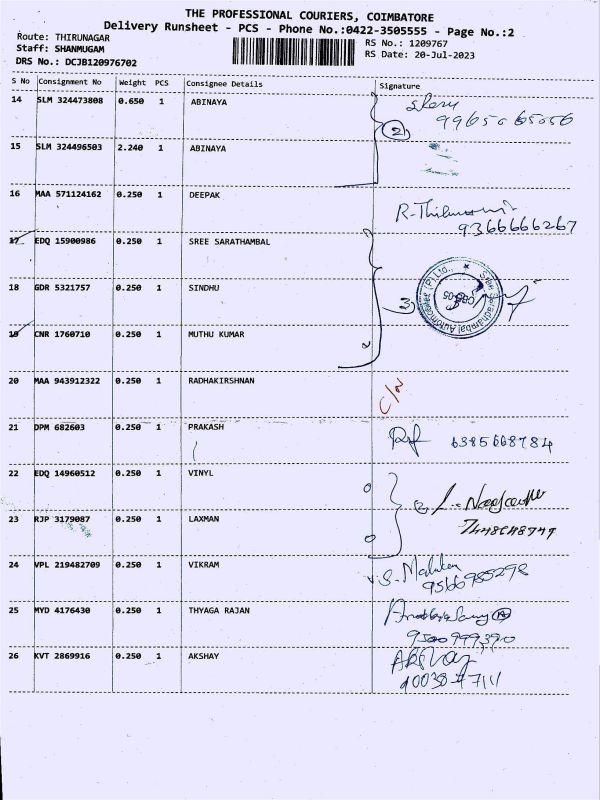 THE PROFESSIONAL COURIERS, COIMBATORE
Delivery Runsheet - PCS - Phone No.:0422-3505555 - Page No.:2
Route: THIRUNAGAR
RS No.: 1209767
Staff: SHANMUGAM
RS Date: 20-Jul-2023
DRS No.: DCJB120976702
S No Consignment No Weight PCS Consignee Details Signature
14 SLM 324473808 0.650 1 ABINAYA
2
15 SLM 324496503 2.240 1 ABINAYA
16 MAA 571124162 0.250 1 DEEPAK
9366666267
17 EDQ 15900986 0.250 1 SREE SARATHAMBAL
18 GDR 5321757 0.250 1 SINDHU
3
19 CNR 1760710 0.250 1 MUTHU KUMAR
20 MAA 943912322 0.250 1 RADHAKIRSHNAN
21 DPM 682603 0.250 1 PRAKASH 6385668784
22 EDQ 14960512 0.250 1 VINYL
23 RJP 3179087 0.250 1 LAXMAN
24 VPL 219482709 0.250 1 VIKRAM
9566985298
25 MYD 4176430 0.250 1 THYAGA RAJAN
26 KVT 2869916 0.250 1 AKSHAY